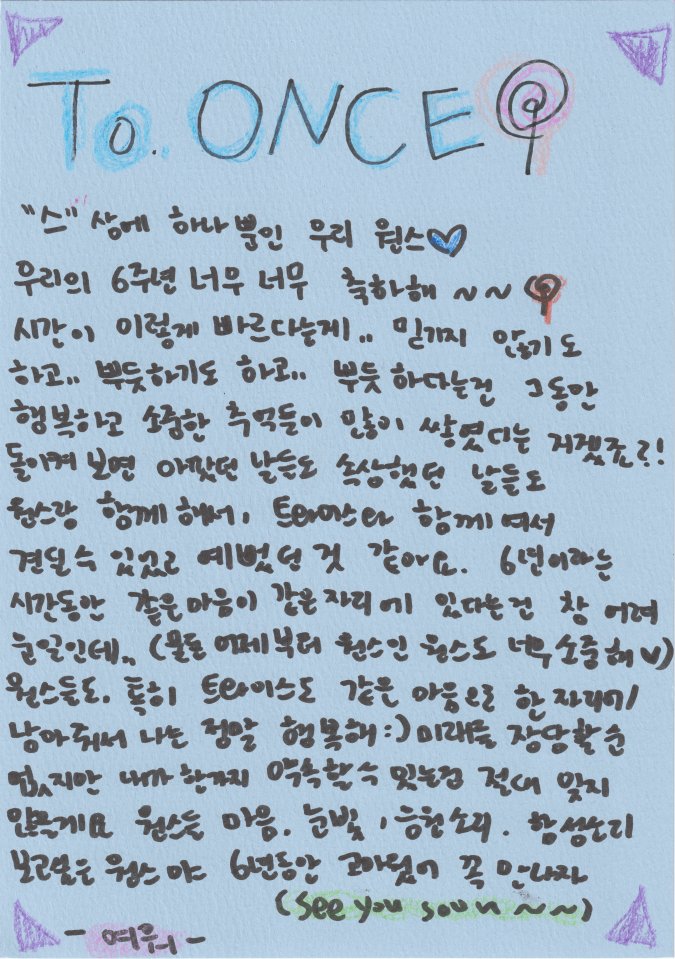 To. ONCE
"스"상에 하나 뿐인 우리 원스♡
우리의 6주년 너무 너무 축하해 ~~
시간이 이렇게 빠르다는게.. 믿기지 않기도
하고.. 뿌듯하기도 하고.. 뿌듯하다는건 그동안
행복하고 소중한 추억들이 많이 쌓였다는 거겠죠?!
돌이켜 보면 아팠던 날들도 속상했던 날들도
원스랑 함께해서, 트와이스라 함께여서
견딜 수 있었고 예뻤던 것 같아요. 6년이라는
시간동안 같은마음이 같은자리에 있다는건 참 어려
운일인데.. (물론 어제부터 원스인 원스도 너무 소중해♡)
원스들도. 특히 트와이스도 같은 마음으로 한자리에
남아줘서 나는 정말 행복해:) 미래를 장담할순
없지만 내가 한가지 약속할수 있는건 절대 잊지
않을게요 원스들 마음. 눈빛, 응원소리. 함성소리
보고싶은 원스야 6년동안 고마웠어 꼭 만나자
(see you soon ~~)
- 여뤄 -